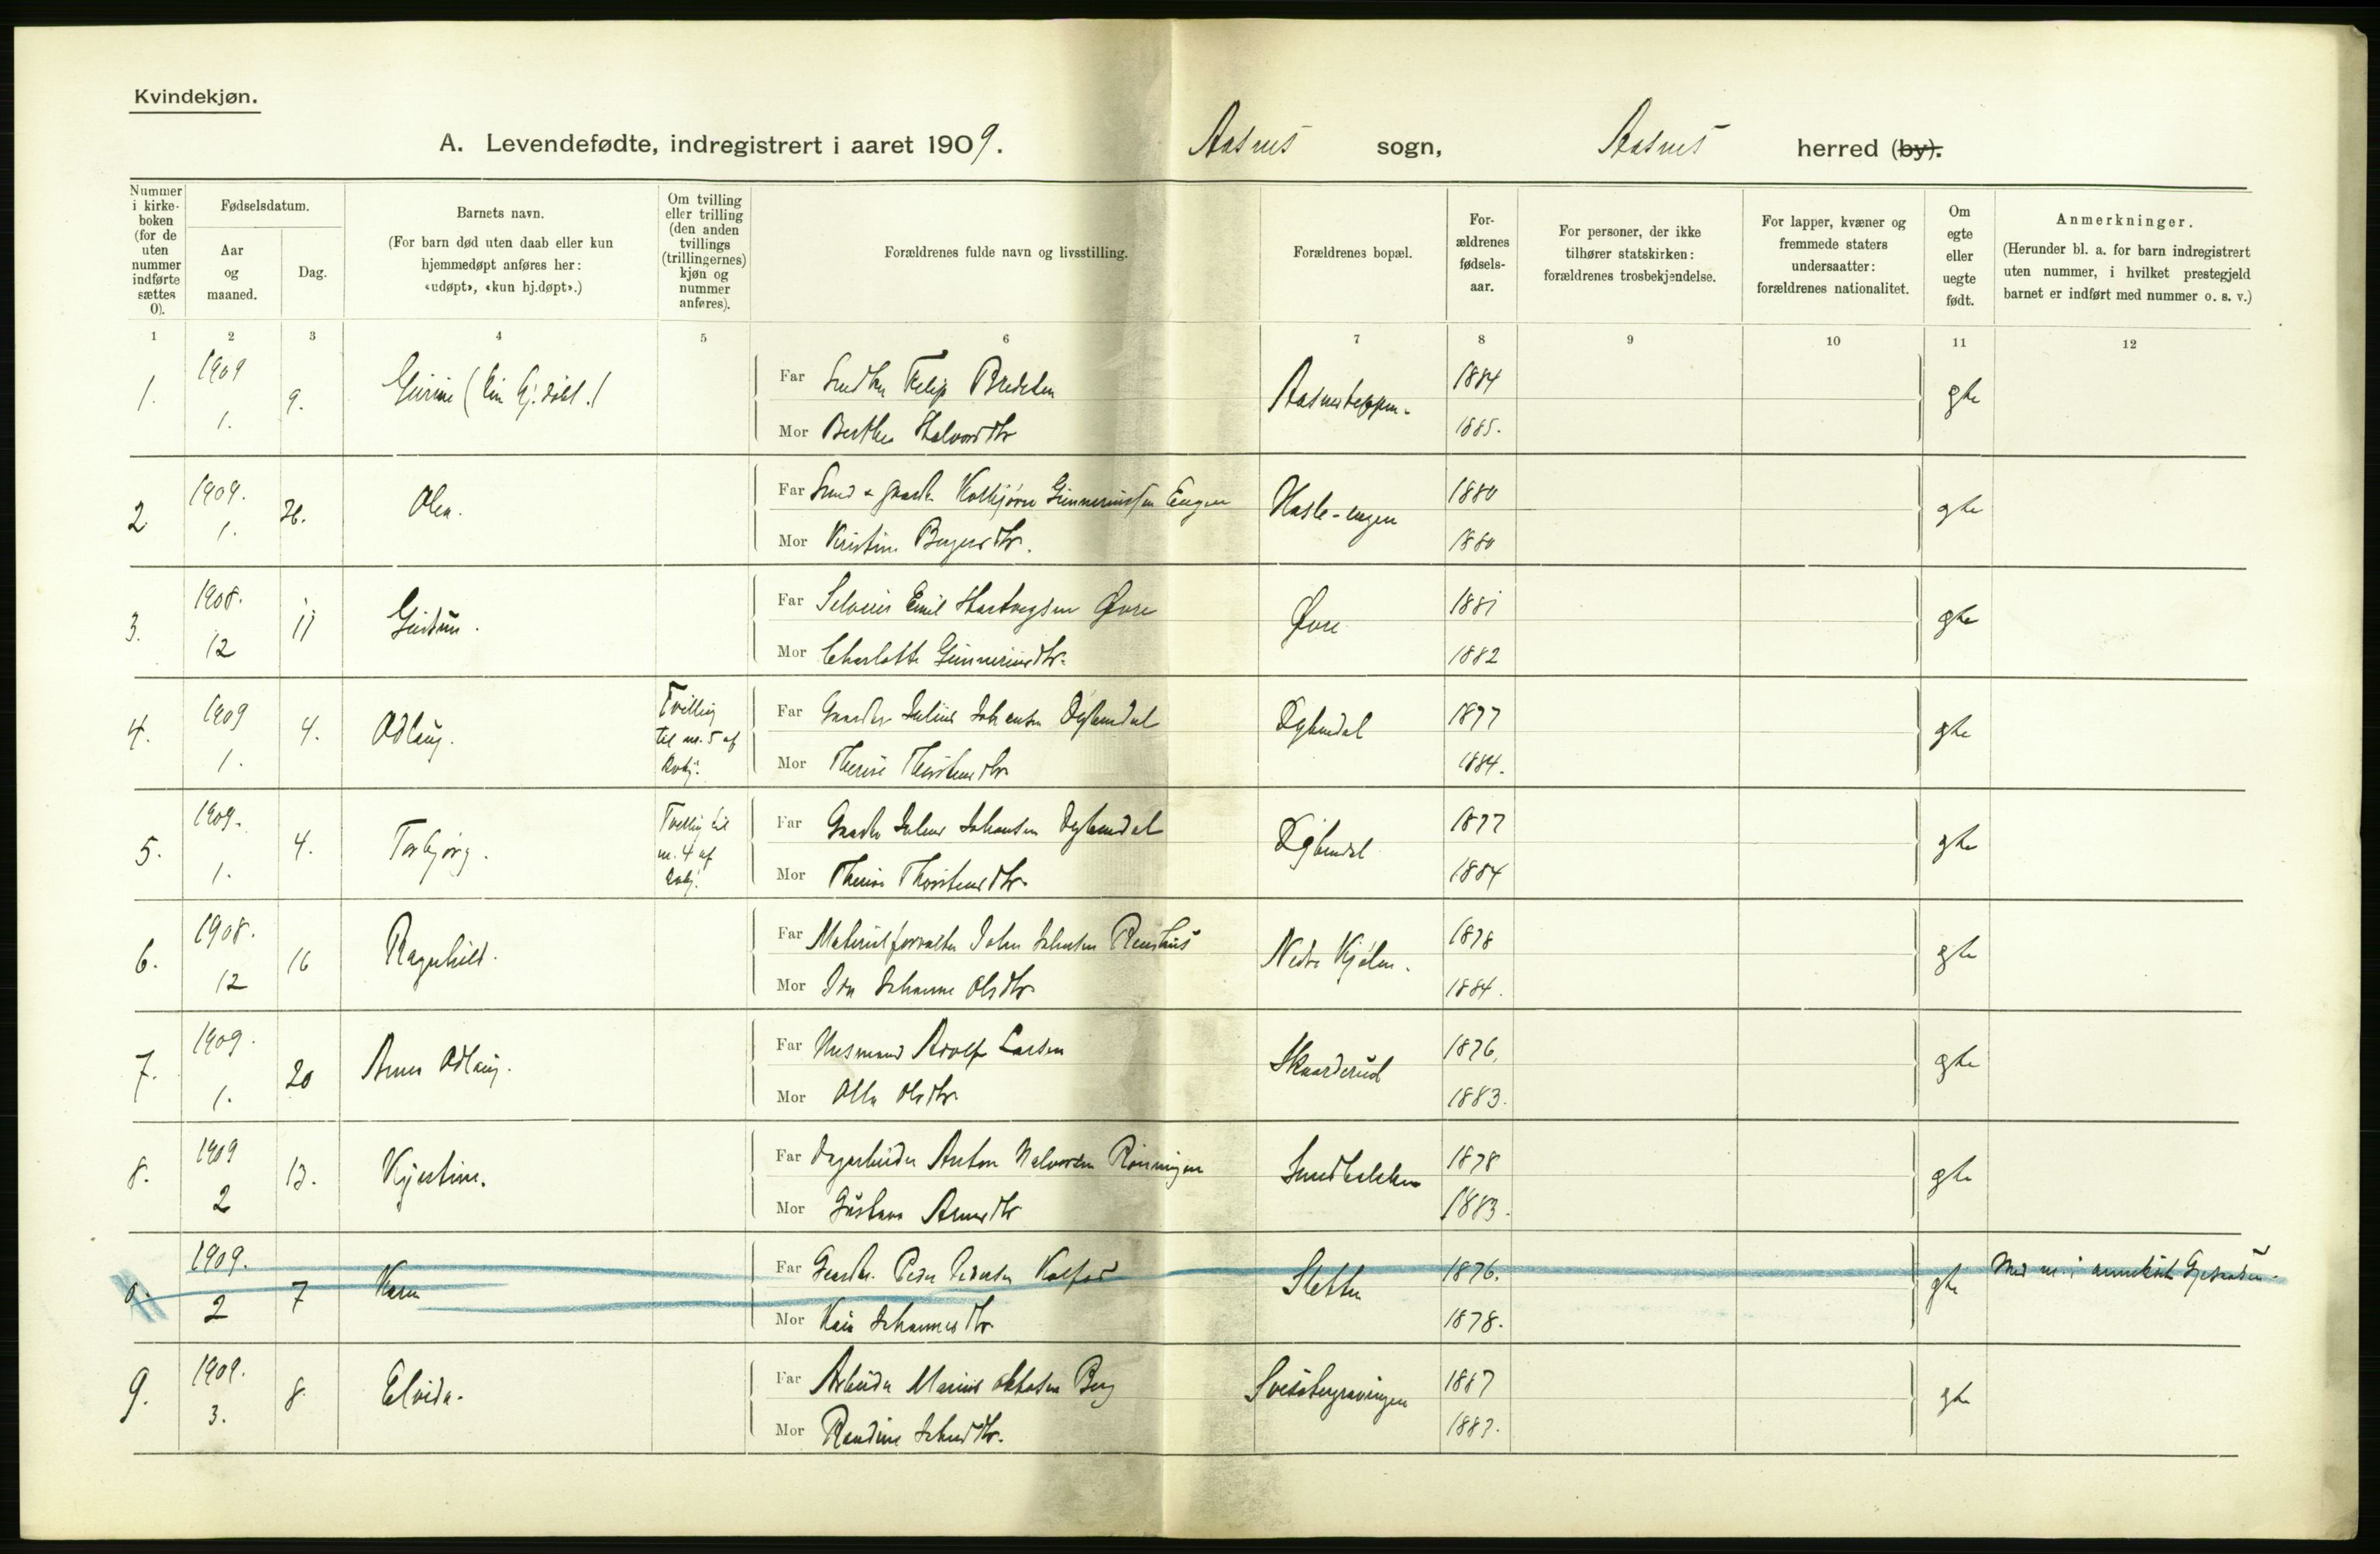 Kvindekjøn.
A. Levendefødte, indregistrert i aaret 1909.
Aasnes sogn, Aasnes herred (by).
Nummer i kirkeboken (for de uten nummer indførte sættes 0).
Fødselsdatum.
Aar og maaned.
Dag.
Barnets navn.
(For barn død uten daab eller kun hjemmedøpt anføres her: «udøpt», «kun hj.døpt».)
Om tvilling eller trilling (den anden tvillings (trillingernes) kjøn og nummer anføres).
Forældrenes fulde navn og livsstilling.
Forældrenes bopæl.
Forældrenes fødselsaar.
For personer, der ikke tilhører statskirken: forældrenes trosbekjendelse.
For lapper, kvæner og fremmede staters undersaatter: forældrenes nationalitet.
Om egte eller uegte født.
Anmerkninger.
(Herunder bl. a. for barn indregistrert uten nummer, i hvilket prestegjeld barnet er indført med nummer o. s. v.)
1 2 3 4 5 6 7 8 9 10 11 12
1. 1909 1. 9. Far 1884 gte
Mor Berthe Halvorsdtr 1885.
2 1909. 1. 26. Olea. Far Kolbjørn Gunneriussen Engen Hasle-engen 1880 gte
Mor Kristine Bergersdtr. 1880
3. 1908. 12 11 Gudrun. Far Selvius Emil Hartvigsen Øvre Øvre 1881 gte
Mor Charlotte Gunneriusdtr. 1882
4. 1909 1. 4. Odlaug. Tvilling til nr. 5 af Far Gaardbr Julius Johansen Dybendal Dybendal 1877 gte
Mor Therese Thorstensdtr 1884.
5. 1909. 1. 4. Torbjørg. Tvillig til nr. 4 af Far Gaardb Julius Johansen Dybendal Dybendal 1877 gte
Mor Therese Thorstensdtr. 1884
6. 1908. 12 16 Ragnhild. Far Materialforvalter John Johnsen Nedre Kjølen. 1878 gte
Mor Ida Johanne Olsdtr 1884.
7. 1909. 1. 20 Anna Odlaug. Far Husmand Adolf Larsen Skaarderud 1876, gte
Mor Olsdtr. 1883.
8. 1909 2 13. Kjerstine. Far Dagarbeider Anton Halvorsen Rønningen 1878 gte
Mor Gustava Arnesdtr 1883.
0. 1909. 2 7 Karen Far Gaardbr. Peder Pedersen Kalfos Sletten 1876. gte Med nr. i annekset Gjesaasen.
Mor Johannesdtr. 1878.
9. 1909. 3. 8. Elvida. Far Arbeider Marius Berg 1887 gte
Mor Randine Johnsdtr. 1887.